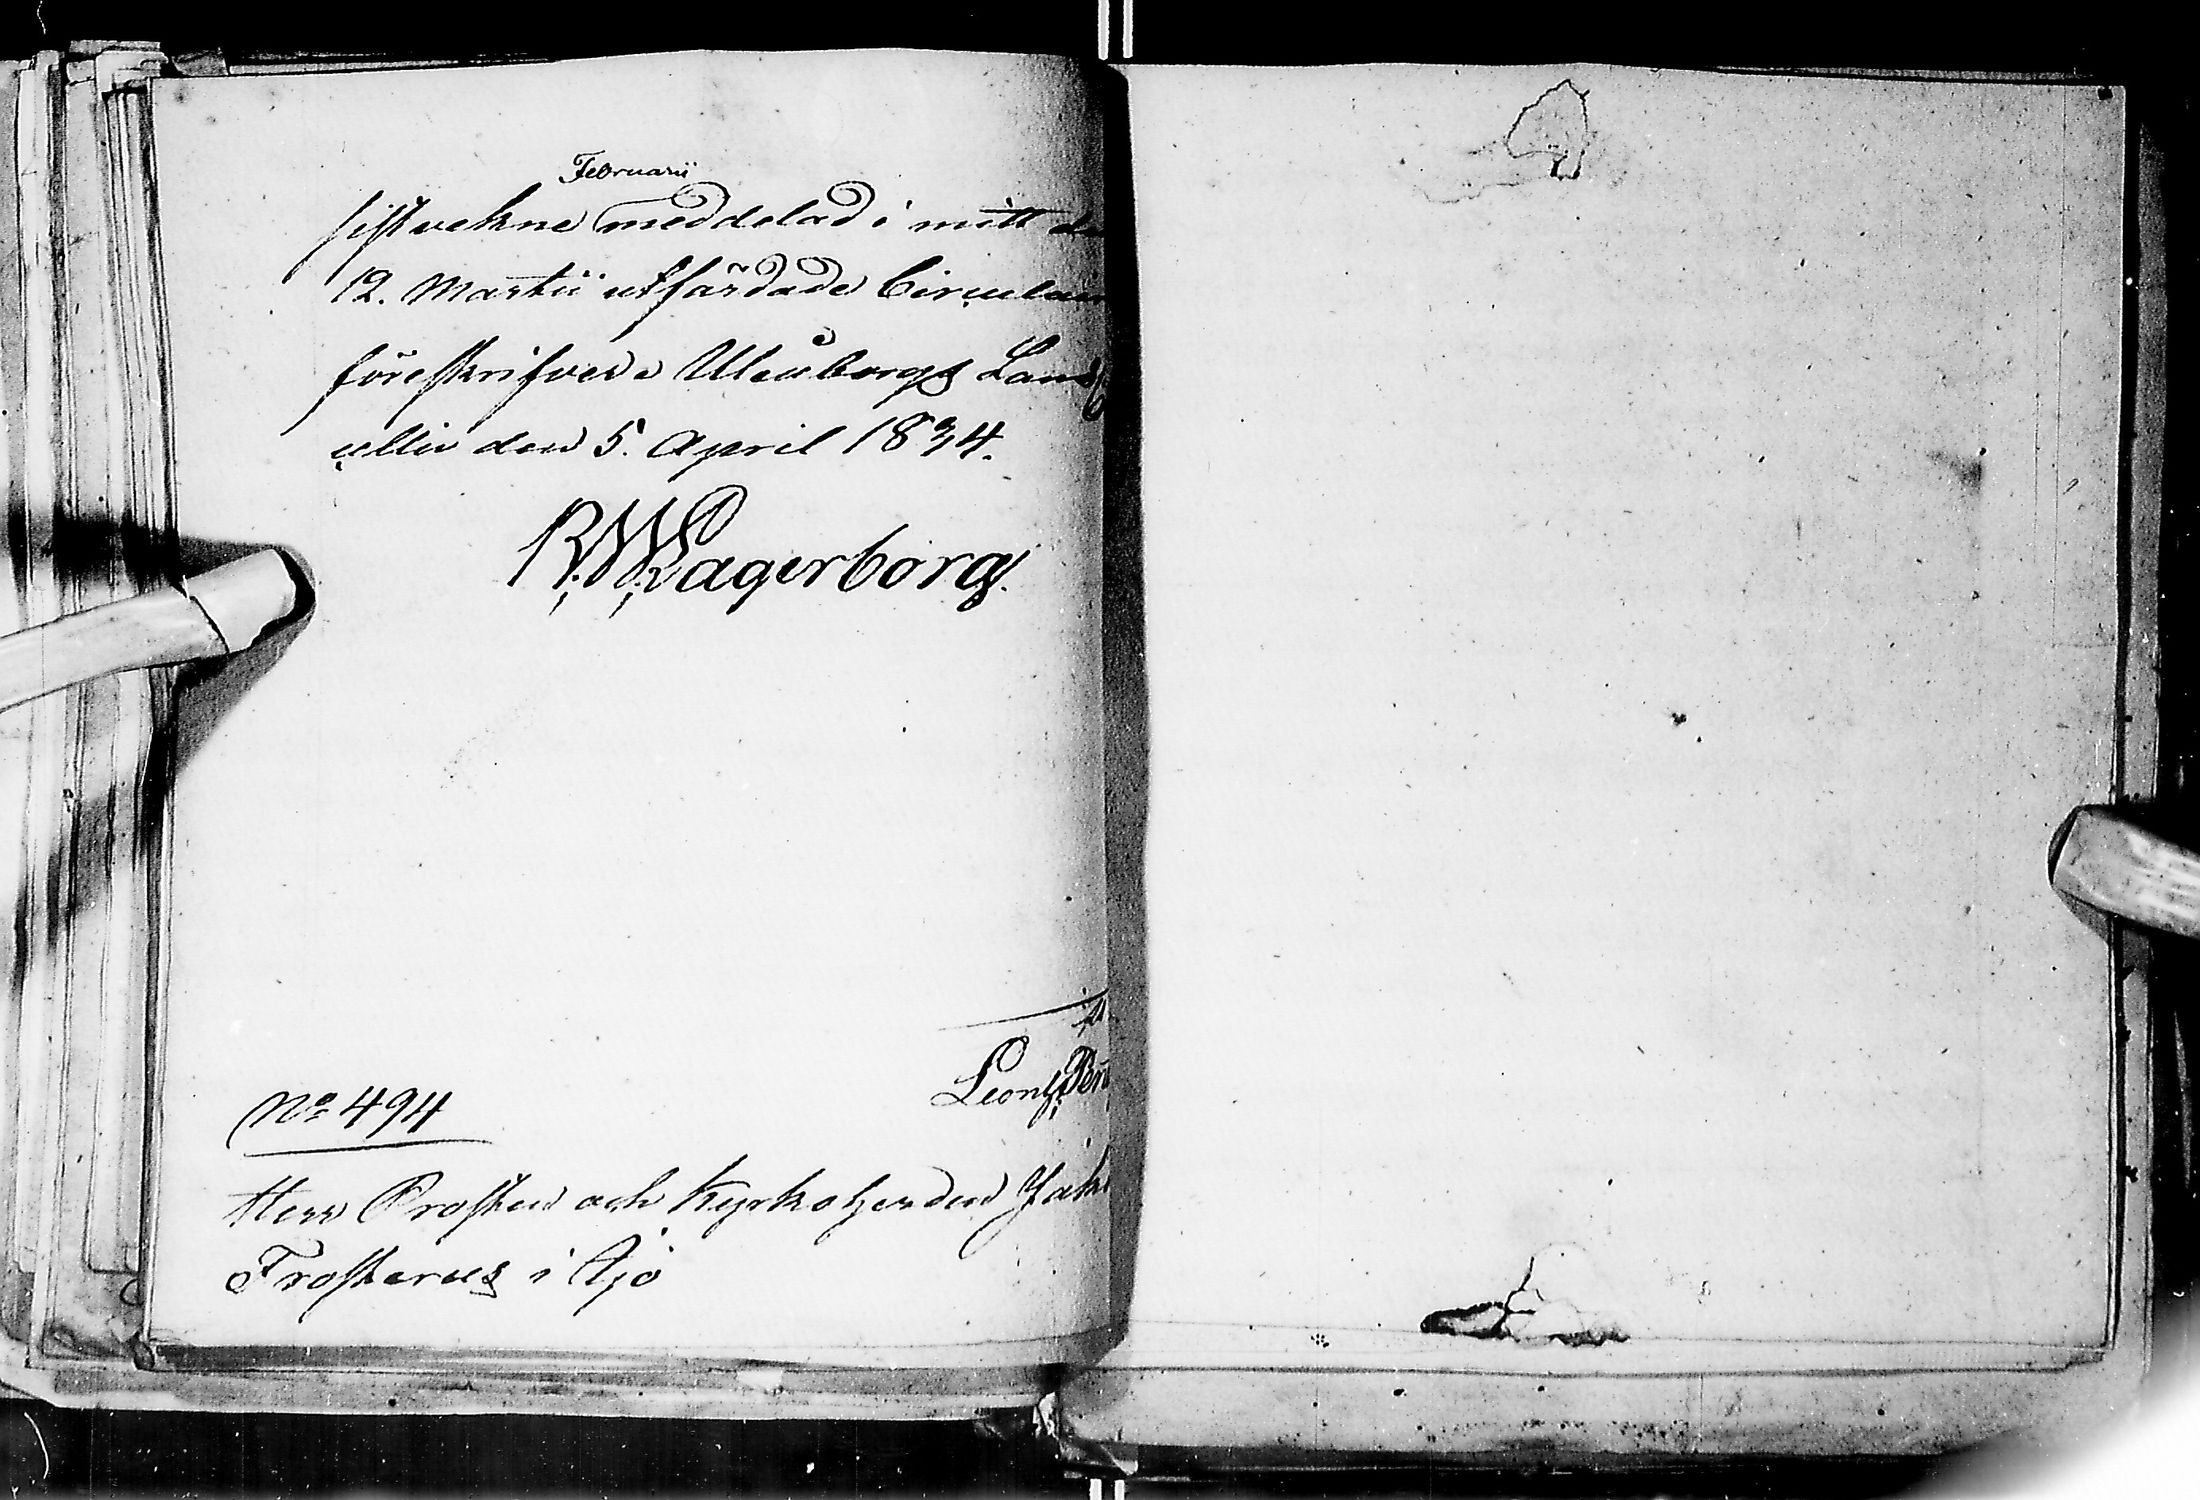 Februarii
sistvekne meddelad i mitt
12. Martii utfärdade Circulair
föreskrifved. Uleåborgs Lands
cellie den 5. April 1834.
R. W. Lagerborg.
Leonh.
No 494
Herr Prosten och Kyrkoherden Jak
Frosterus i Ijo